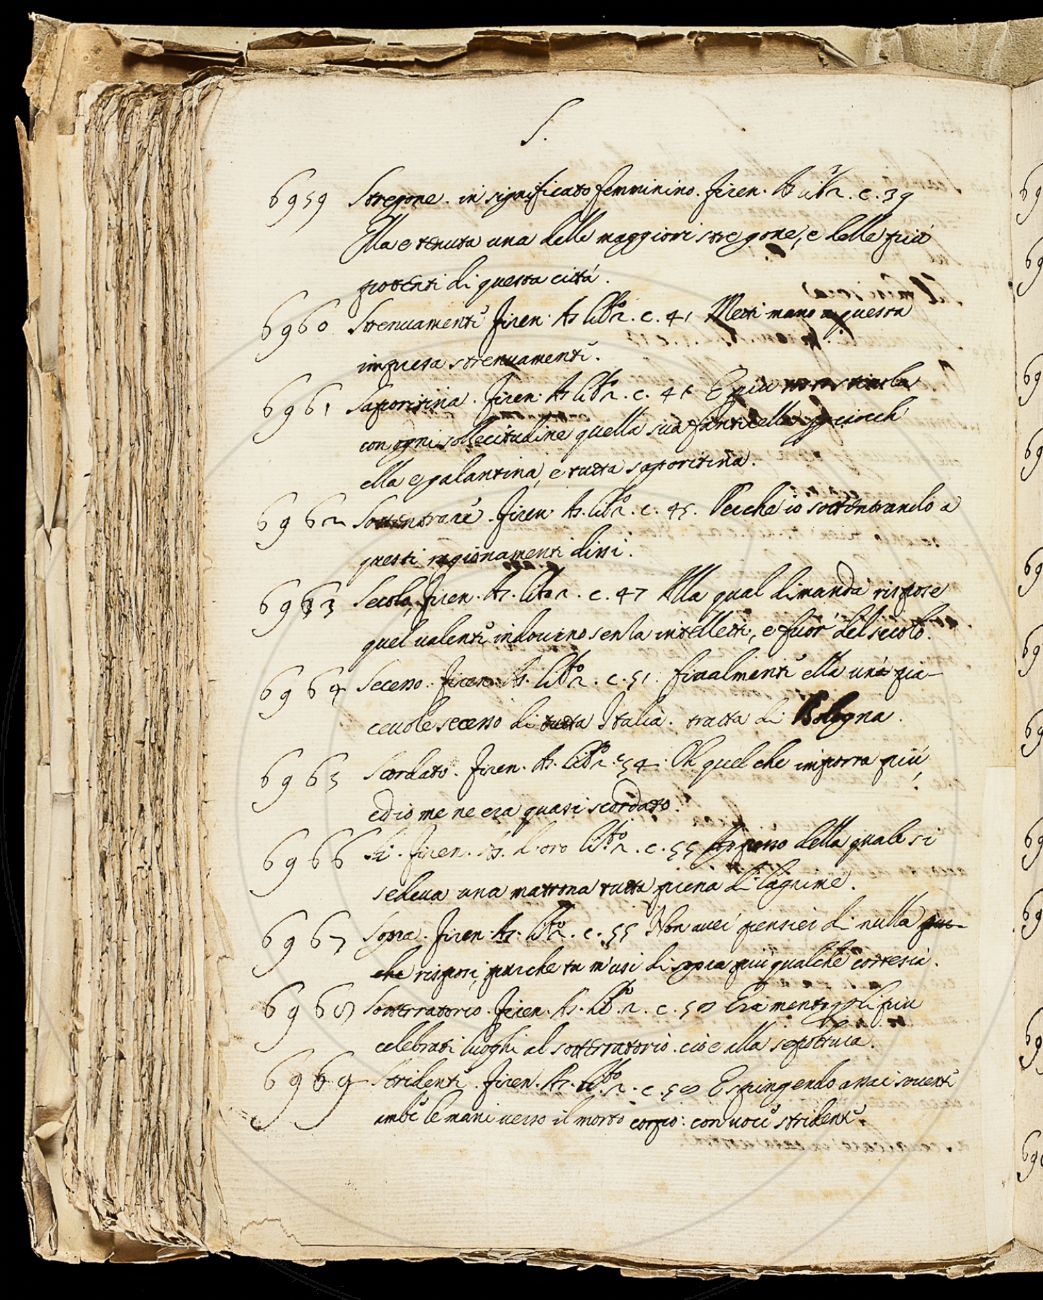 S.
6959 Stregone. in significato femminino. Firen. As. lib.º 2. c. 39
Ella e tenuta una delle maggiori stregone, e delle più
potenti di questa città.
6960 Strenuamente Firen. As. lib.º 2. c. 41 Metti mano a questa
impresa strenuamente.
6961 Saporitina. Firen. As. lib.º 2. c. 41 E più
con ogni sollecitudine quella sua fanticella
ella e galantina, e tutta saporitina.
6962 Sottentrare. Firen. As. lib.º 2. c. 45. Perche io sottentrando a
questi ragionamenti dissi.
6963 Secolo Firen. As. lib.º 2. c. 47 Alla qual dimanda rispose
quel valente indovino senza intelletti, e fuor del secolo.
6964 Secesso. Firen. As. lib.º 2. c. 51. finalmente ella una pia-
cevole secesso di tutta Italia. tratta di Bologna.
6965 Scordato. Firen. As. lib.º 2. c. 54. Oh quel che importa più,
ed io me ne era quasi scordato.
6966 Si. Firen. As. d'oro lib.º 2. c. 55 della quale si
sedeva una matrona tutta piena di lagrime.
6967 Sopra. Firen. As. lib.º 2. c. 55 Non aver pensier di nulla
che risposi, purche tu m'usi di sopra più qualche cortesia.
6968 Sotterratorio. Firen. As. lib.º 2. c. 58 Era mentr'
celebrati luoghi al sotterratorio. cioe alla sepoltura.
6969 Stridente. Firen. As. lib.º 2. c. 58 E spingendo
ambe le mani verso il morto corpo: con voce stridente.